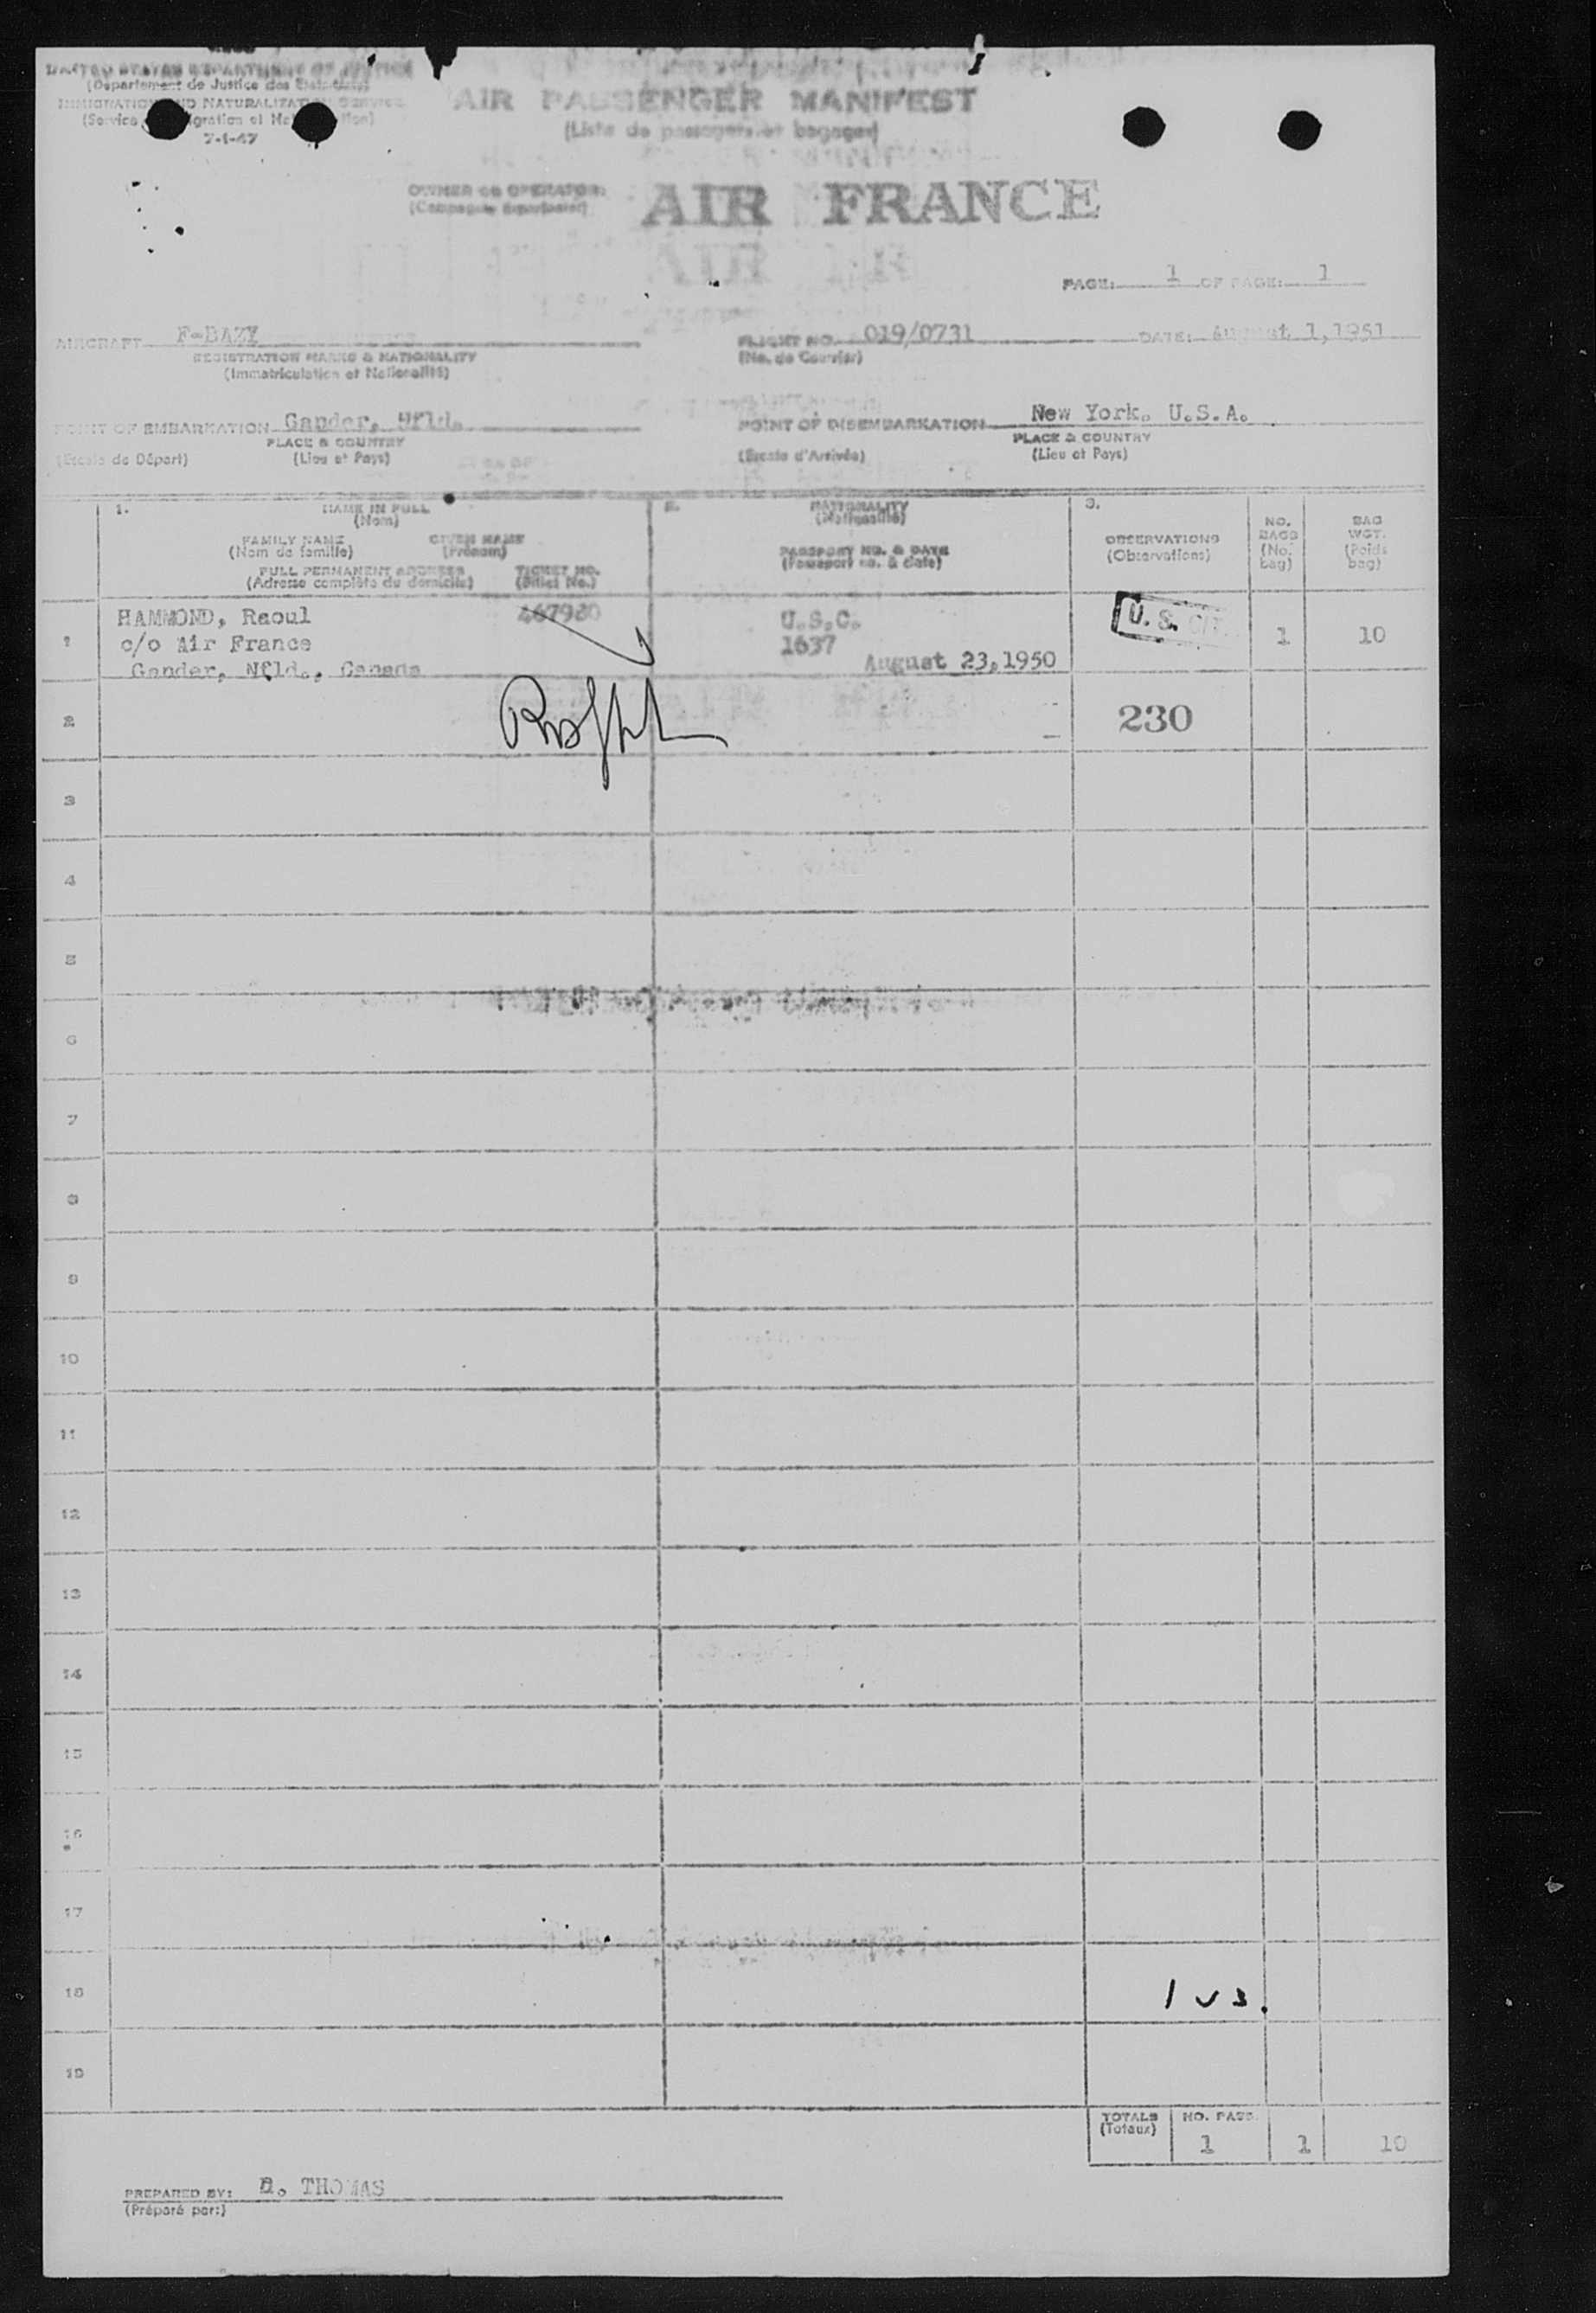 UNITED STATES DEPARTMENT OF JUSTICE
(Departement de Justice des
IMMIGRATION AND NATURALIZATION Service
(Service
7-1-47
AIR PASSENGER MANIFEST
(Liste de passagers et bagages)
OWNER OR OPERATOR:
AIR FRANCE
PAGE: 1 OF PAGE: 1
AIRCRAFT F-BAZY
REGISTRATION MARKS & NATIONALITY
(Immatriculation et Nationalité)
FLIGHT NO. 019/0731
(No. de Courrier)
DATE: August 1, 1951
POINT OF EMBARKATION Gander, Nfld.
PLACE & COUNTRY
(Escale de Départ) (Lieu et Pays)
POINT OF DISEMBARKATION New York. U.S.A.
PLACE & COUNTRY
(Escale d'Arrivée) (Lieu et Pays)
1. NAME IN FULL
(Nom)
FAMILY NAME GIVEN NAME
(Nom de famille) (Prénom)
FULL PERMANENT ADDRESS TICKET NO.
(Adresse complète du domicile) (Billet No.)
2. NATIONALITY
(Nationalité)
PASSPORT NO. & DATE
(Passeport no. & date)
3.
OBSERVATIONS
(Observations)
NO.
BAGS
(No.
bag)
BAG
WGT.
(Poids
bag)
1 HAMMOND, Raoul 467980 U.S.C. U.S. CIT. 1 10
c/o Air France 1637
Gander, Nfld., Canada August 23, 1950
2 230
3
4
5
6
7
8
9
10
11
12
13
14
15
16
17
18 1 US.
19
TOTALS NO. PASS.
(Totaux) 1 1 10
PREPARED BY: THOMAS
(Préparé par:)